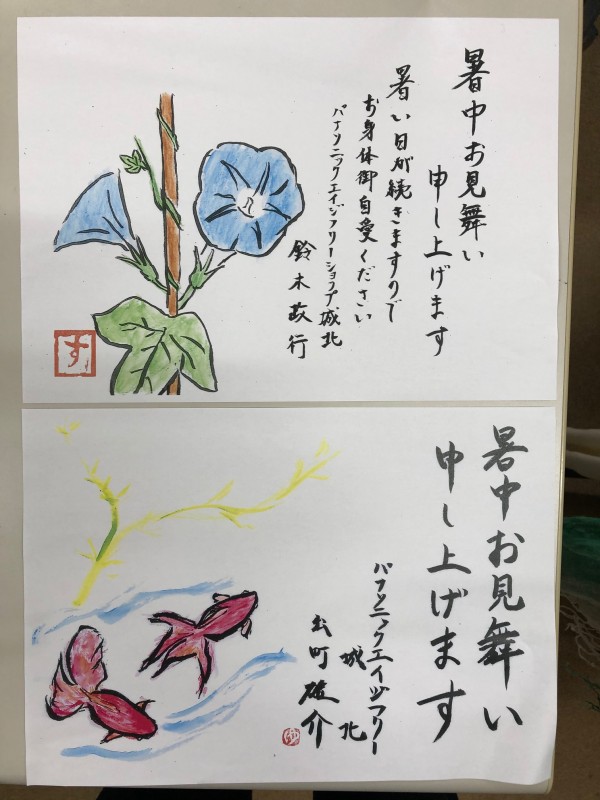 暑中お見舞い
申し上げます
暑い日が続きますので
お身体御自愛ください
パナソニックエイジフリーショップ城北
鈴木敬行
す
暑中お見舞い
申し上げます
パナソニックエイジフリー
城北
出町雄介